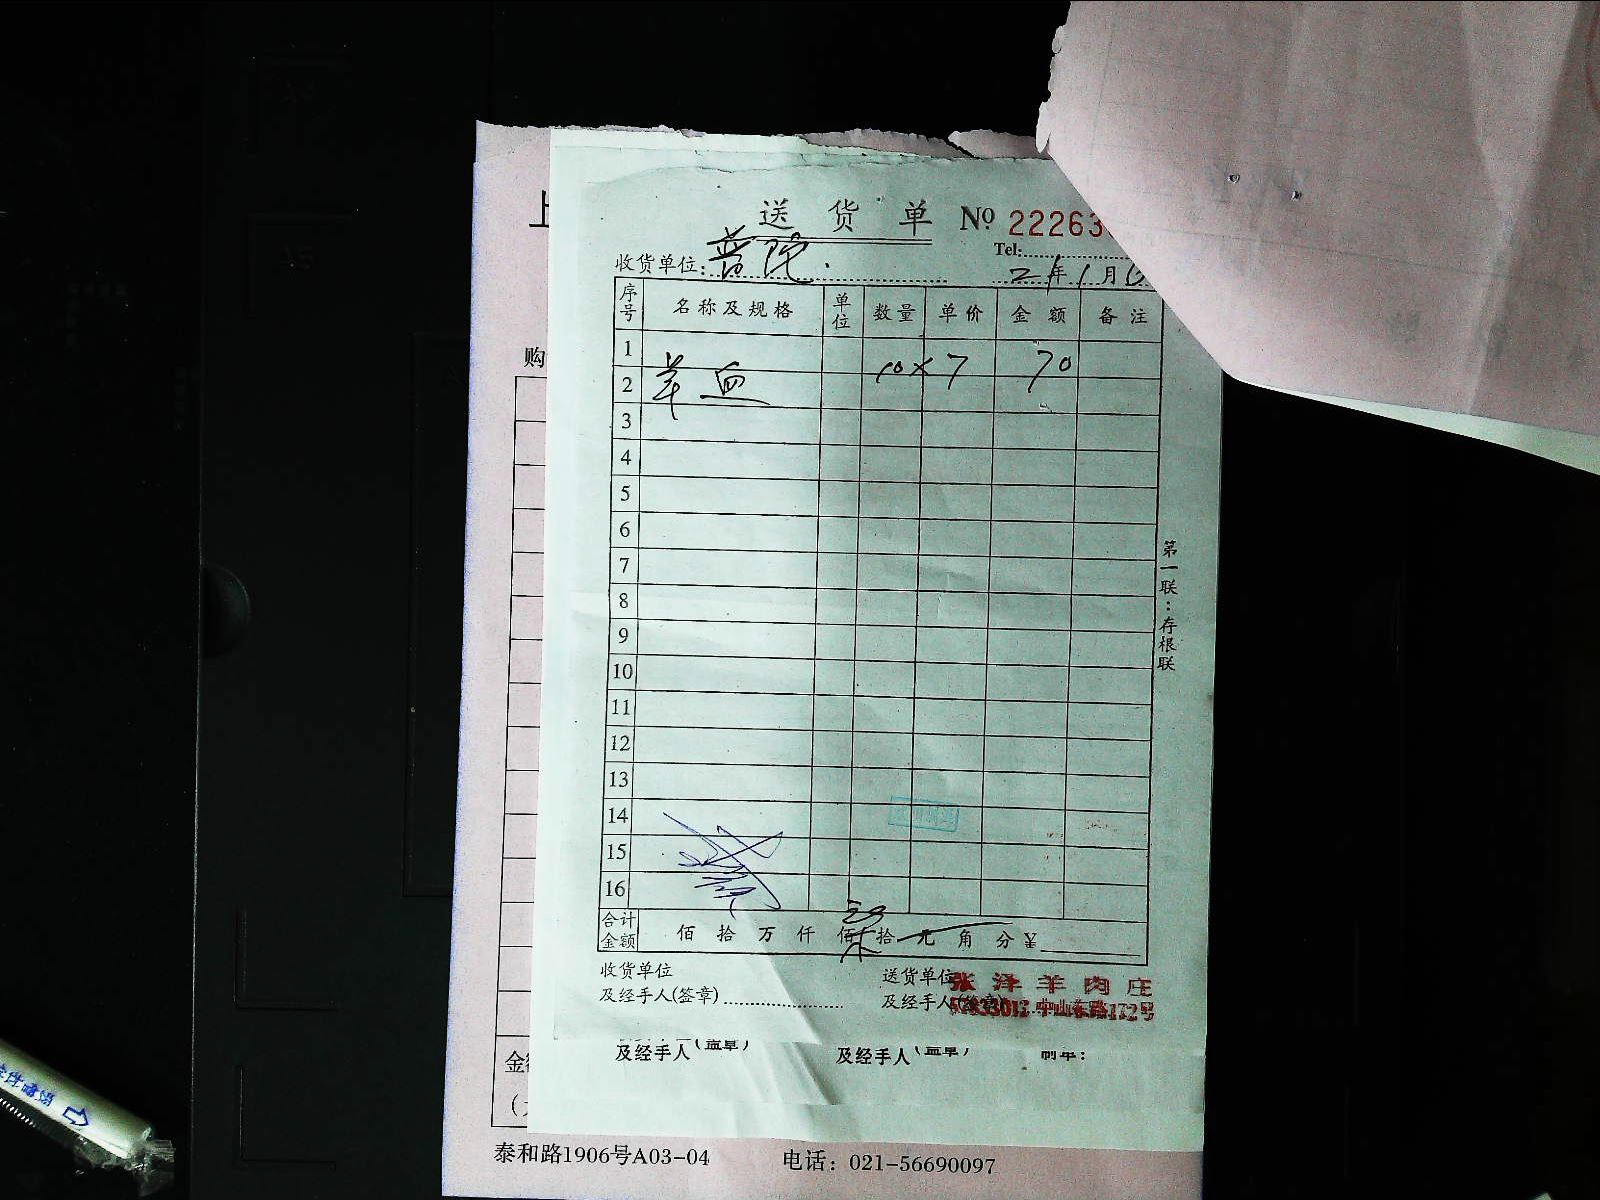 上
送货单 № 22263
Tel:
收货单位: 普陀
2年1月
购
序号 名称及规格 单位 数量 单价 金额 备注
1
2 羊血 10×7 70
3
4
5
6
7
8
9
10
11
12
13
14
15
16
第一联:存根联
合计金额 佰拾万仟佰拾元角分¥
收货单位 送货单位
及经手人(签章) 及经手人
张泽羊肉庄
中山东路172号
及经手人(盖章) 及经手人(盖章) 制单:
金
泰和路1906号A03-04 电话: 021-56690097